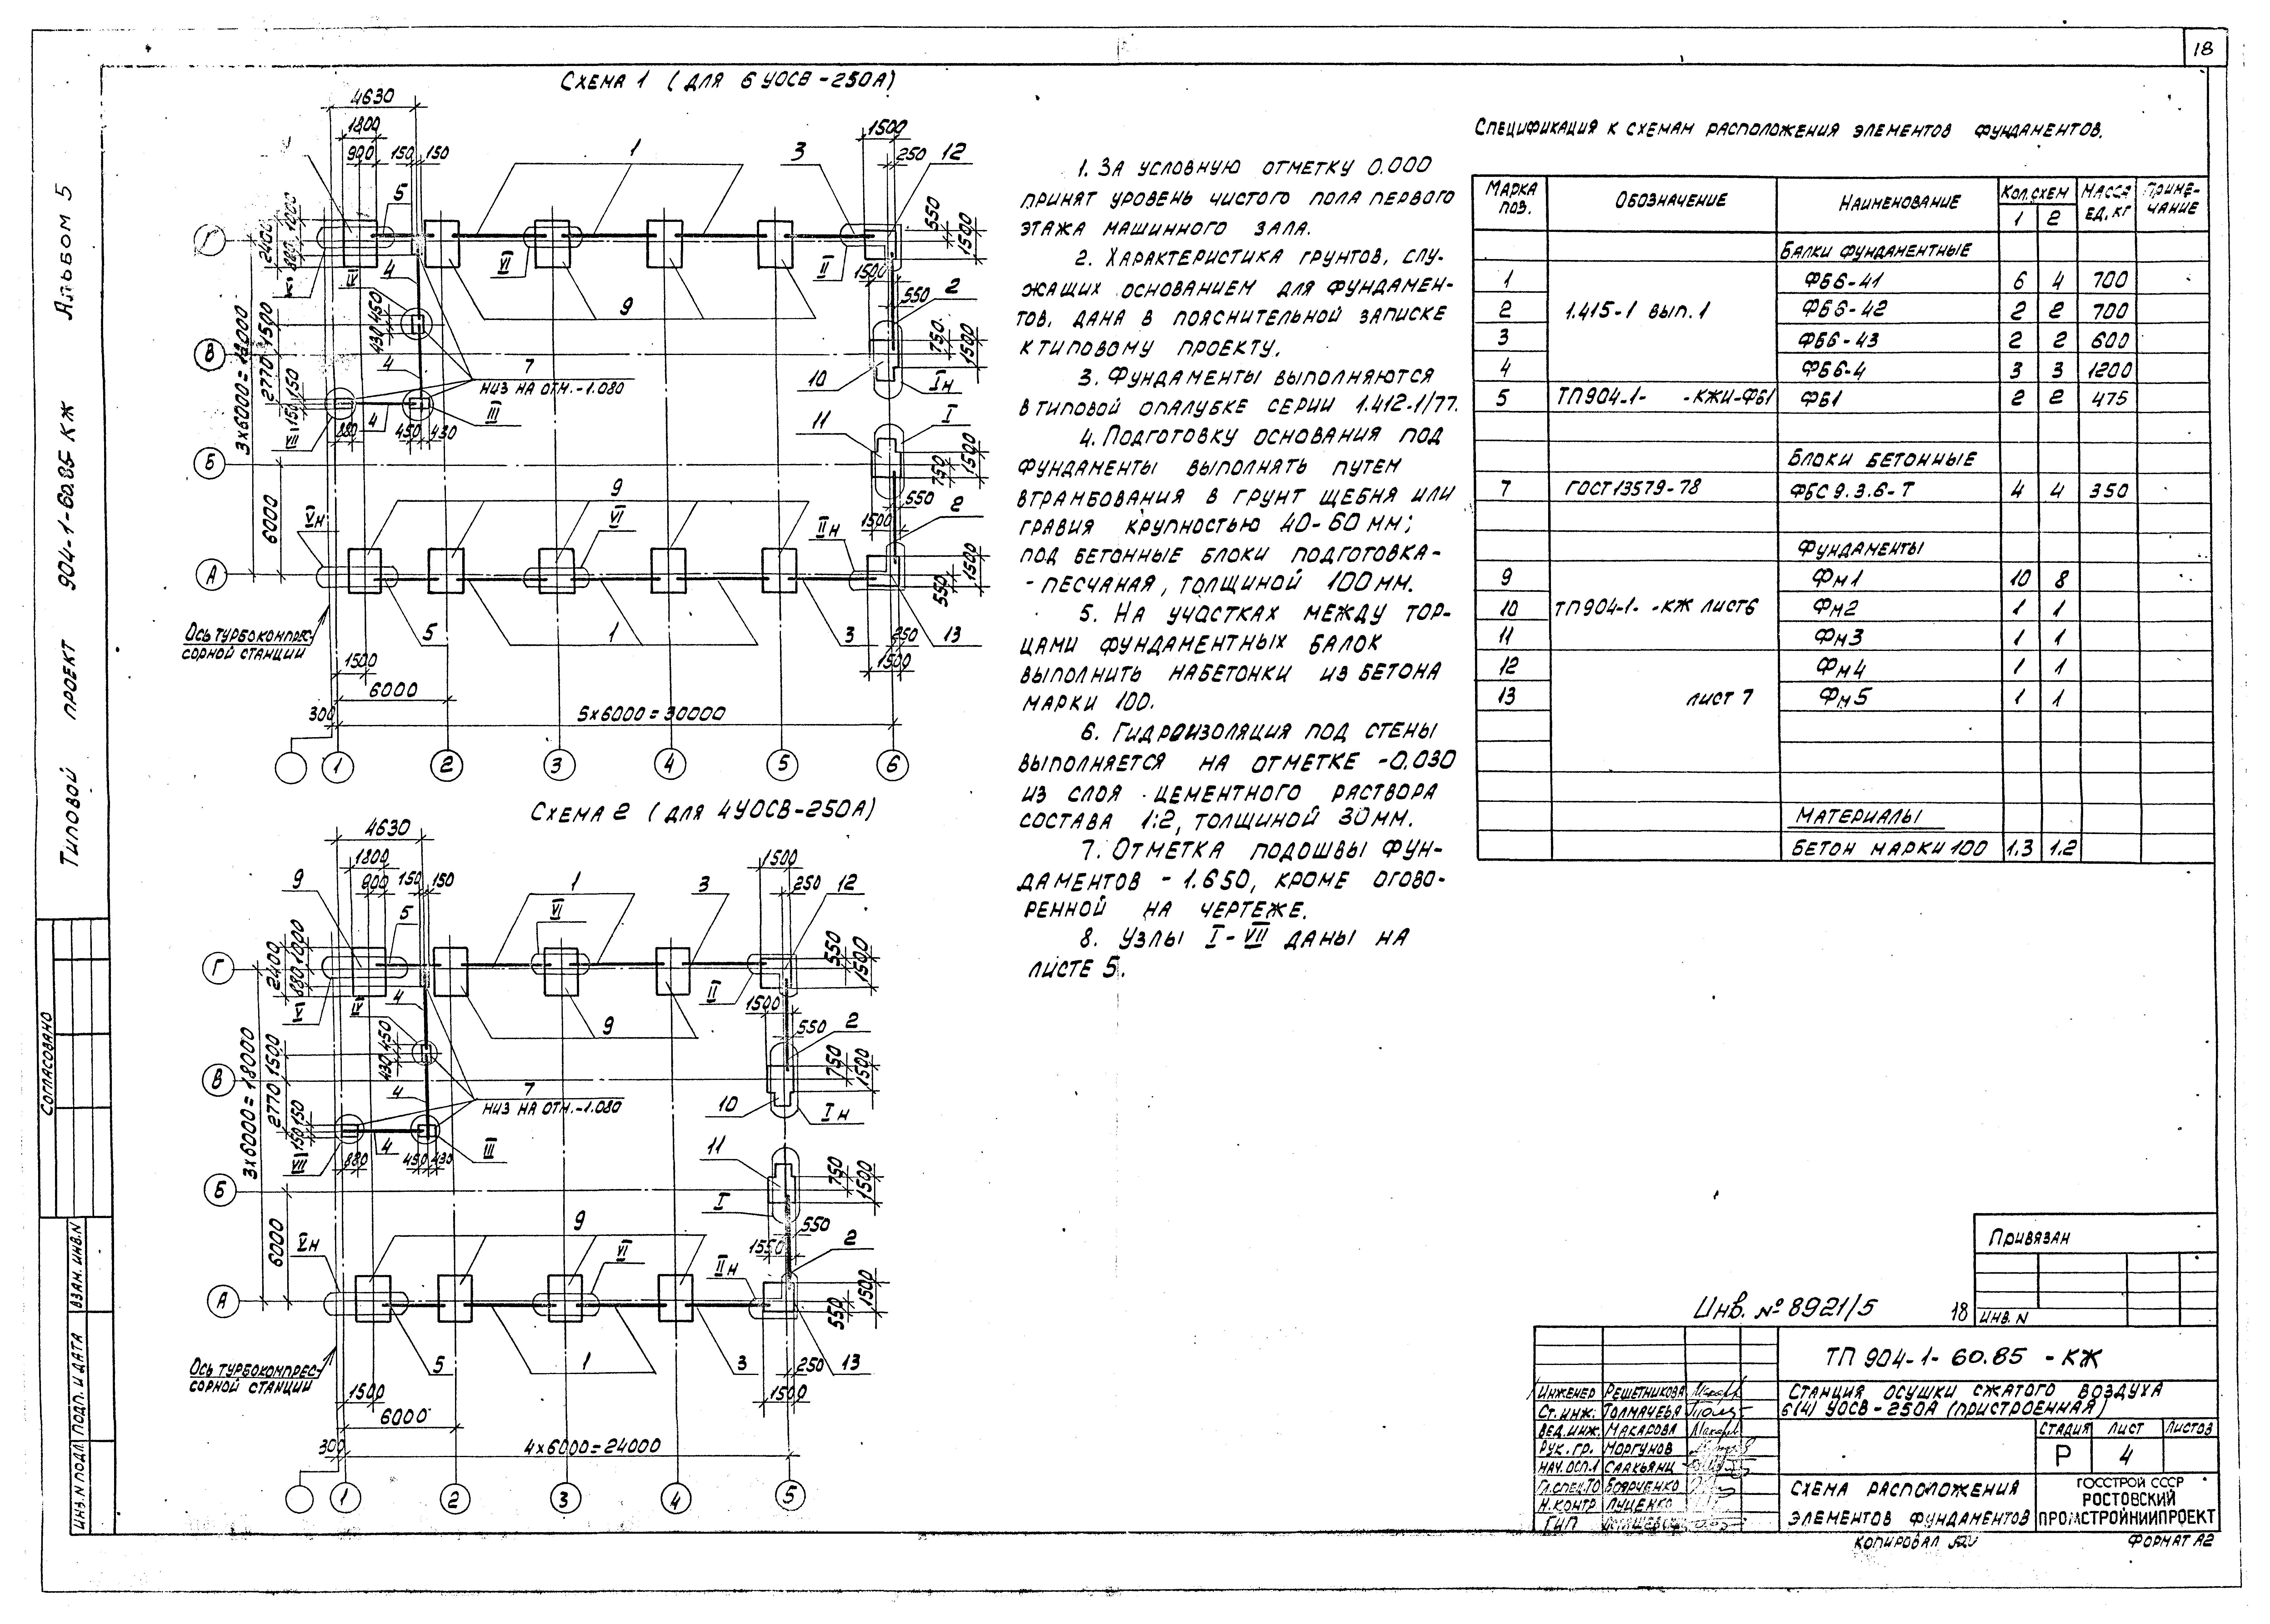 18
Альбом 5
904-1-60.85 КЖ
проект
Типовой
Согласовано
Взам. инв. N
Подп. и дата
Инв. N подл.
Схема 1 (для 6 УОСВ-250А)
4630
1800
900
150
150
1
3
1500
250
12
5
Г
2400
1000
880
550
1500
IV
4
VI
II
1500
9
550
2
3х6000=18000
1500
2770
450
430
В
4
7
низ на отм.-1.080
750
1500
10
Iн
150
150
VII
880
4
450
430
III
11
I
Б
750
1500
9
550
2
Vн
6000
VI
IIн
1500
А
1500
550
Ось турбокомпрес-
сорной станции
5
1
3
250
13
1500
1500
6000
300
5х6000=30000
1
2
3
4
5
6
Схема 2 (для 4УОСВ-250А)
4630
1800
900
150
150
1
3
1500
250
12
9
5
VI
Г
2400
1000
880
550
1500
V
IV
4
II
1500
9
550
2
3х6000=18000
1500
2770
450
430
В
4
7
низ на отм.-1.080
750
1500
10
Iн
150
150
VII
880
4
450
430
III
11
Б
750
1500
I
9
550
2
Vн
6000
VI
1550
IIн
А
1500
550
Ось турбокомпрес-
сорной станции
5
1
3
250
13
1500
1500
6000
300
4х6000=24000
1
2
3
4
5
1. За условную отметку 0.000
принят уровень чистого пола первого
этажа машинного зала.
2. Характеристика грунтов, слу-
жащих основанием для фундамен-
тов, дана в пояснительной записке
к типовому проекту.
3. Фундаменты выполняются
в типовой опалубке серии 1.412-1/77.
4. Подготовку основания под
фундаменты выполнять путем
втрамбования в грунт щебня или
гравия крупностью 40-60 мм;
под бетонные блоки подготовка-
-песчаная, толщиной 100 мм.
5. На участках между тор-
цами фундаментных балок
выполнить набетонки из бетона
марки 100.
6. Гидроизоляция под стены
выполняется на отметке -0.030
из слоя цементного раствора
состава 1:2, толщиной 30 мм.
7. Отметка подошвы фун-
даментов -1.650, кроме огово-
ренной на чертеже.
8. Узлы I-VII даны на
листе 5.
Спецификация к схемам расположения элементов фундаментов.
Марка поз. Обозначение Наименование Кол. схем 1 2 Масса ед, кг Приме-чание
Балки фундаментные
1 ФБ6-41 6 4 700
2 1.415-1 вып.1 ФБ6-42 2 2 700
3 ФБ6-43 2 2 600
4 ФБ6-4 3 3 1200
5 ТП904-1- -КЖИ-ФБ1 ФБ1 2 2 475
Блоки бетонные
7 ГОСТ 13579-78 ФБС 9.3.6-Т 4 4 350
Фундаменты
9 Фм1 10 8
10 ТП904-1- -КЖ лист6 Фм2 1 1
11 Фм3 1 1
12 Фм4 1 1
13 лист 7 Фм5 1 1
Материалы
Бетон марки 100 1.3 1.2
Привязан
Инв. N
Инв. № 8921/5
18
ТП 904-1-60.85 -КЖ
Станция осушки сжатого воздуха
6(4) УОСВ-250А (пристроенная)
Инженер Решетникова
Ст. инж. Толмачева
Вед. инж. Макарова
Рук. гр. Моргунов
Нач. ОСП.1 Саакьянц
Гл.спец.ТО Боярченко
Н. контр Луценко
ГИП
Стадия Лист Листов
Р 4
Схема расположения
элементов фундаментов
ГОССТРОЙ СССР
РОСТОВСКИЙ
ПРОМСТРОЙНИИПРОЕКТ
Копировал
Формат А2